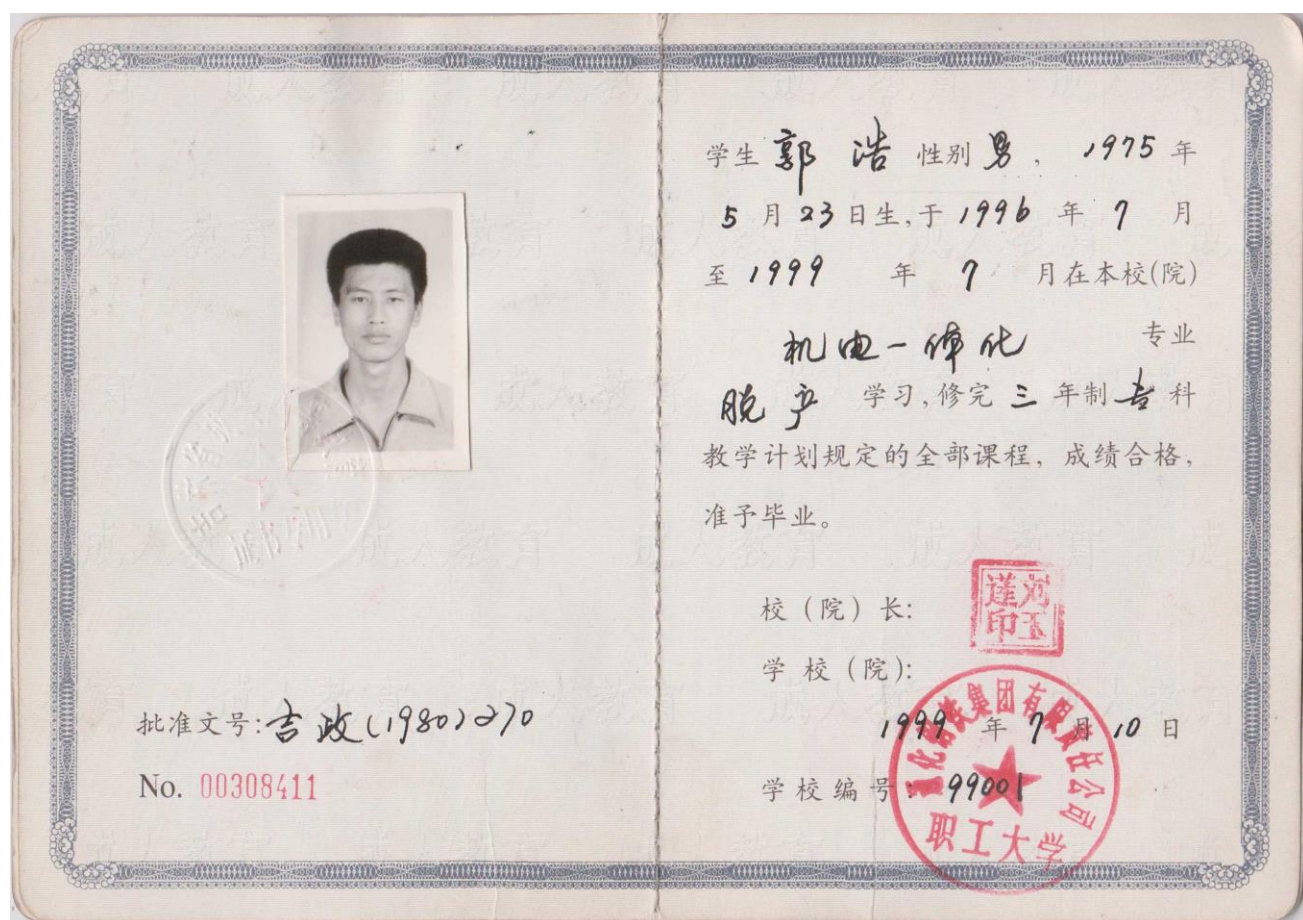 批准文号:吉政(1980)270
No. 00308411
学生 郭浩 性别 男 , 1975 年
5 月 23 日生,于 1996 年 7 月
至 1999 年 7 月在本校(院)
机电一体化 专业
脱产 学习,修完 三 年制 专 科
教学计划规定的全部课程, 成绩合格,
准予毕业。
校 (院) 长:
学 校 (院):
1999 年 7 月 10 日
学校编号: 99001
集团有限责任公司
职工大学
成人教育